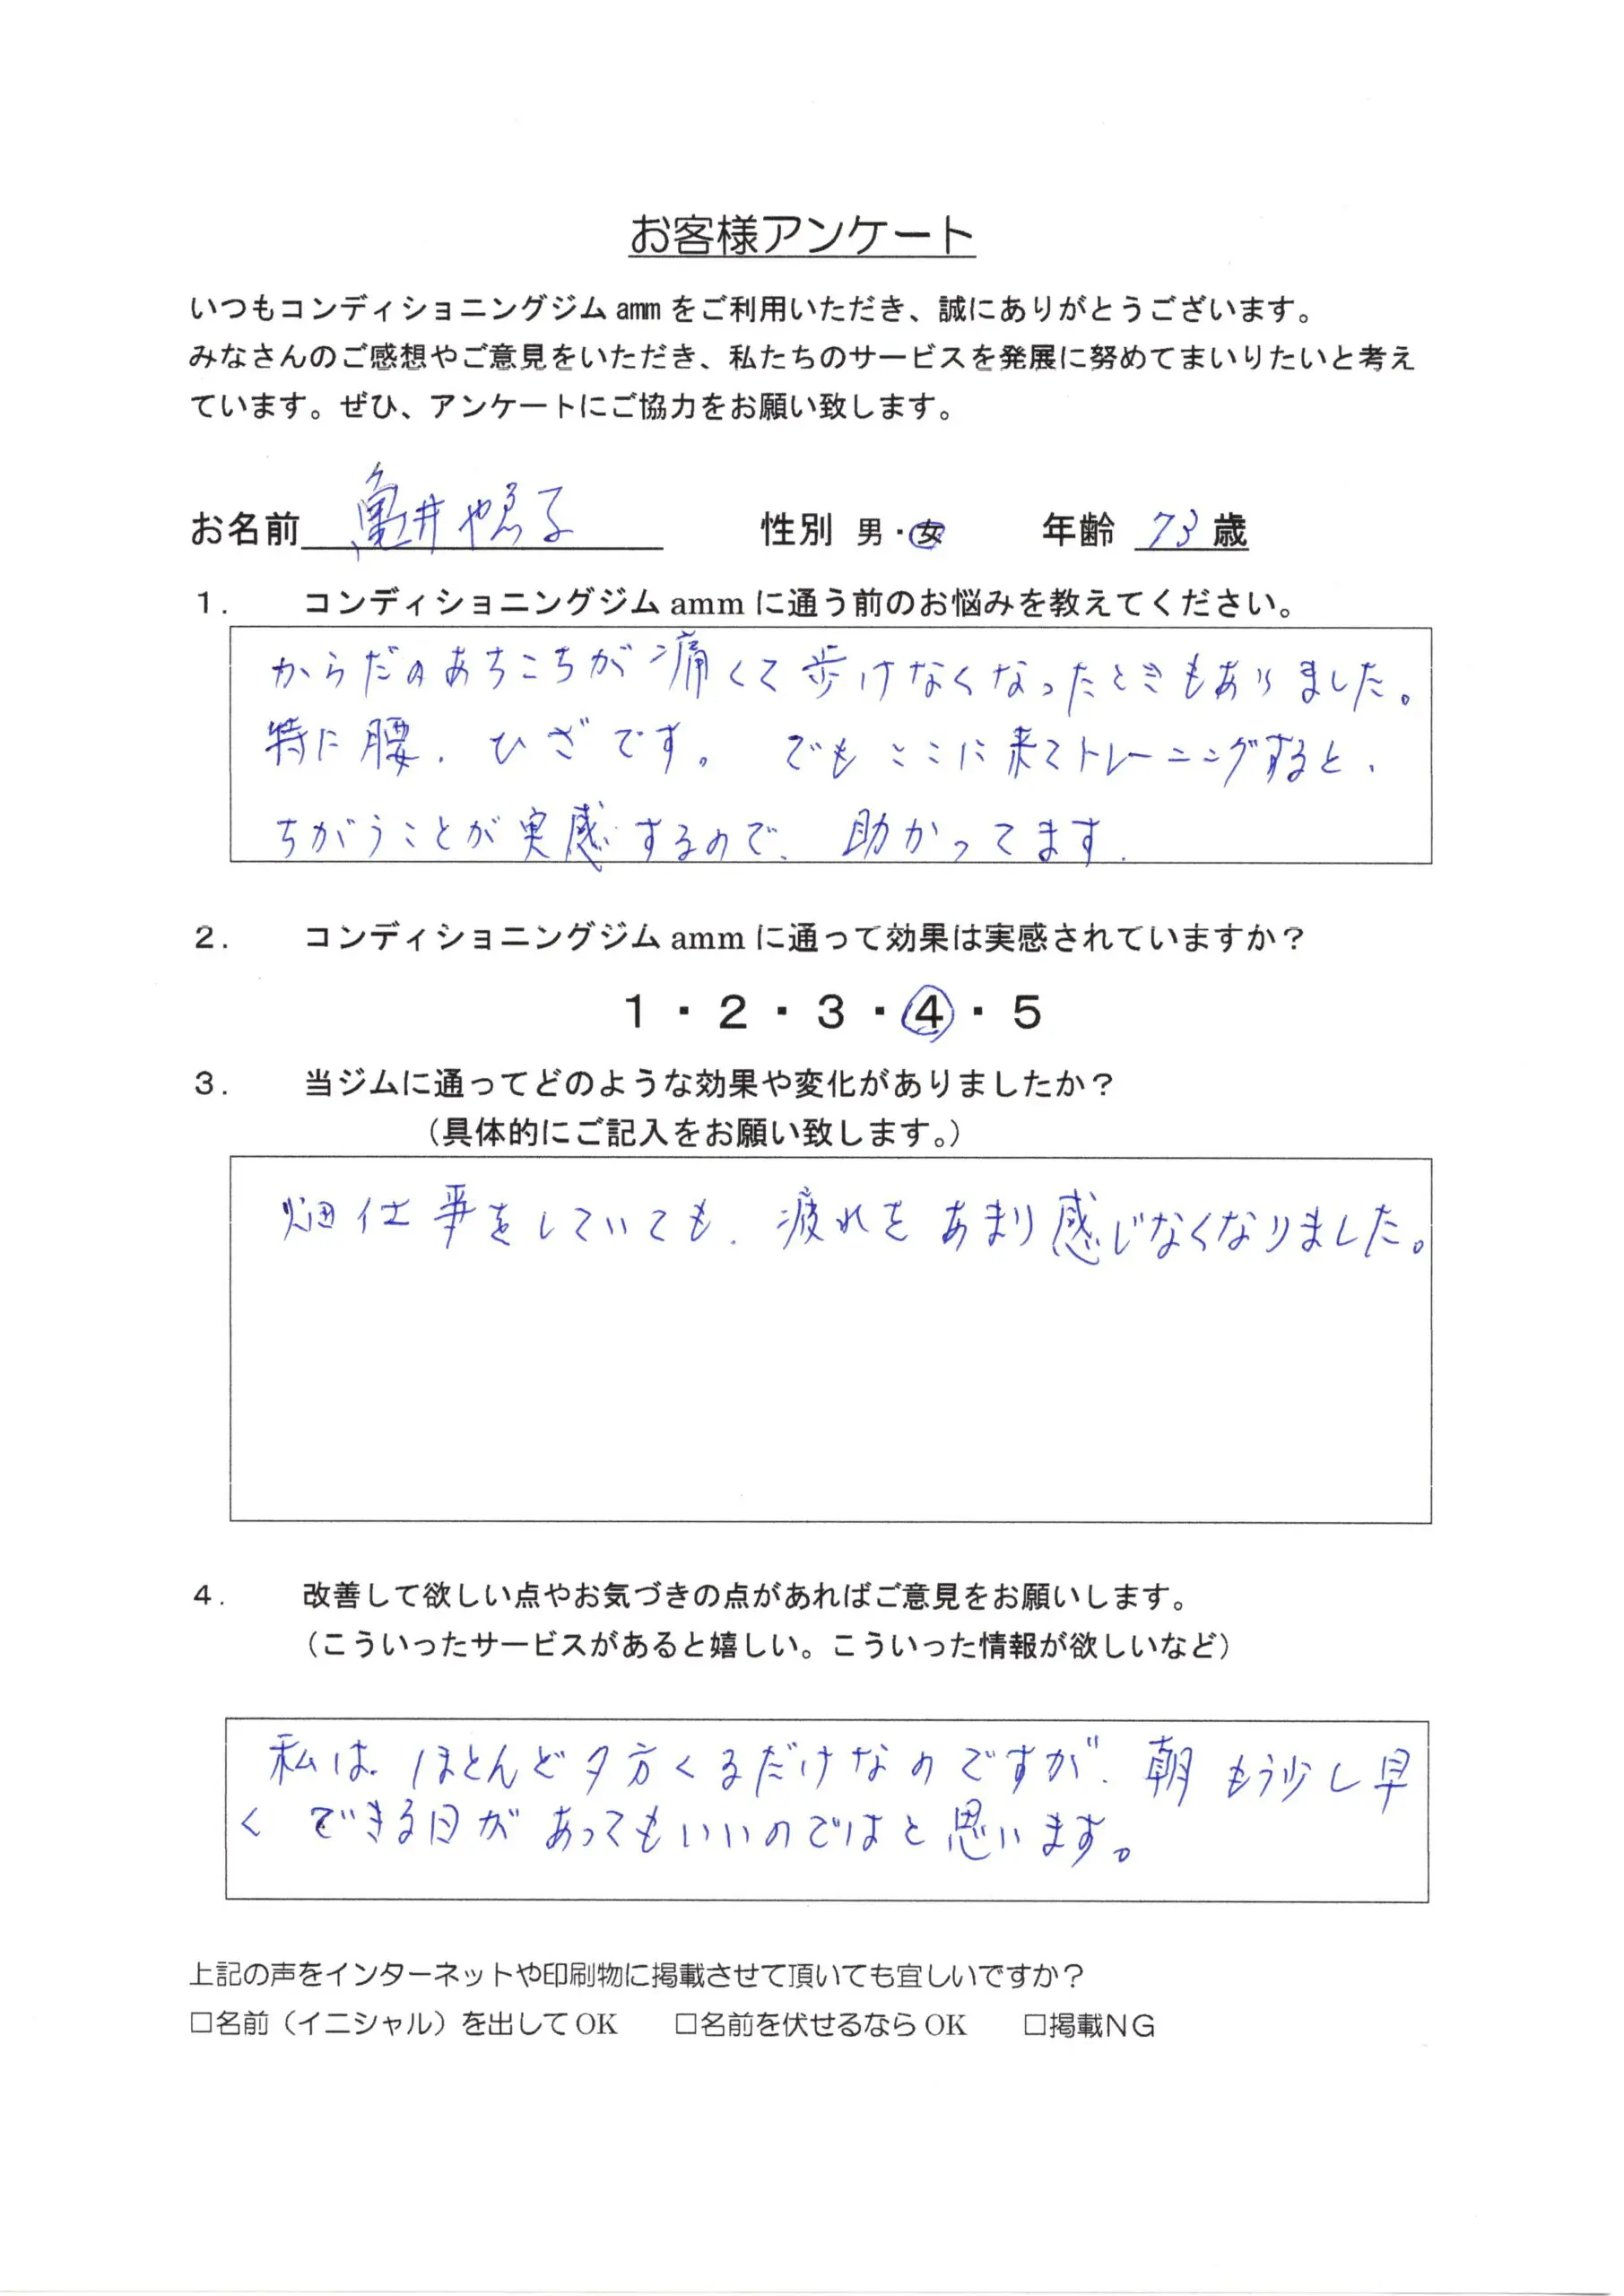 お客様アンケート
いつもコンディショニングジム amm をご利用いただき、誠にありがとうございます。
みなさんのご感想やご意見をいただき、私たちのサービスを発展に努めてまいりたいと考え
ています。ぜひ、アンケートにご協力をお願い致します。
お名前 亀井 性別 男・女 年齢 73 歳
1. コンディショニングジム amm に通う前のお悩みを教えてください。
からだのあちこちが痛くて歩けなくなったときもありました。
特に腰、ひざです。 でもここに来てトレーニングすると、
ちがうことが実感するので、助かってます.
2. コンディショニングジム amm に通って効果は実感されていますか？
1・2・3・4・5
3. 当ジムに通ってどのような効果や変化がありましたか？
（具体的にご記入をお願い致します。）
畑仕事をしていても、疲れをあまり感じなくなりました。
4. 改善して欲しい点やお気づきの点があればご意見をお願いします。
（こういったサービスがあると嬉しい。こういった情報が欲しいなど）
私は、ほとんど夕方くるだけなのですが、朝もう少し早
くできる日があってもいいのではと思います。
上記の声をインターネットや印刷物に掲載させて頂いても宜しいですか？
□名前（イニシャル）を出して OK □名前を伏せるなら OK □掲載ＮＧ